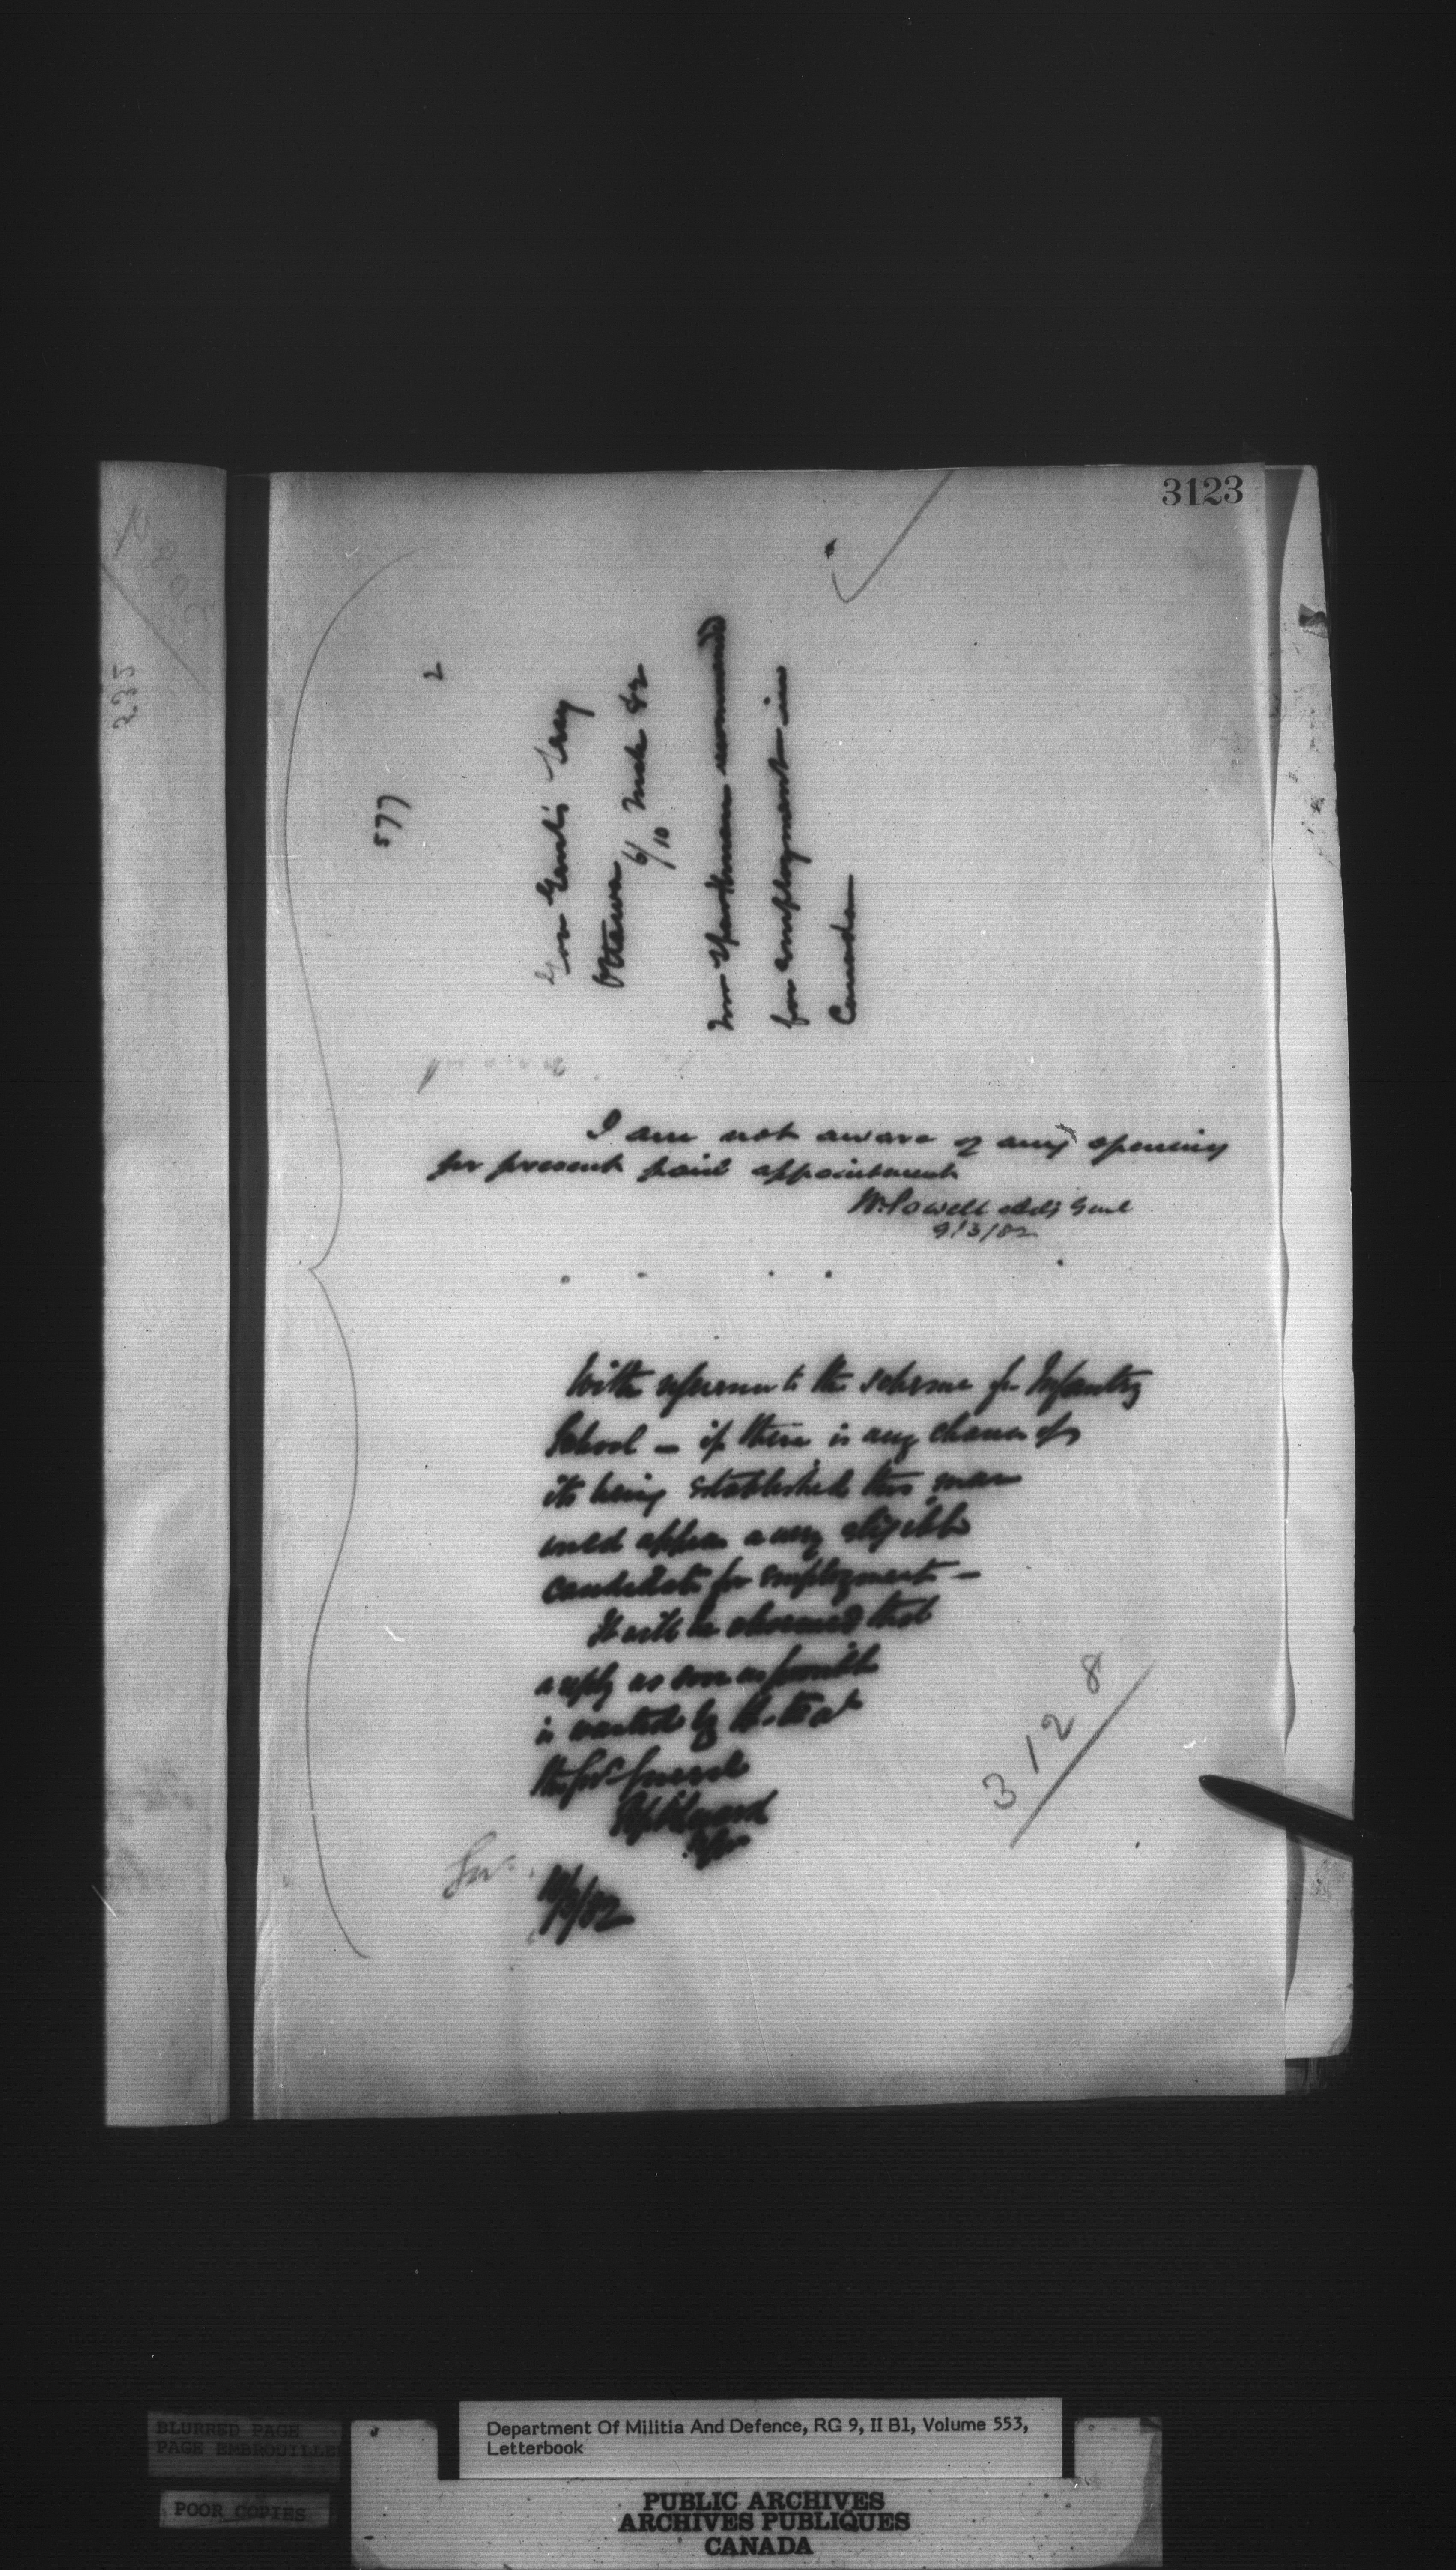 3123
532
577
2
Gov Genl's Secy
Ottawa 6/10 Mch 82
for employment in
Canada
I am not aware of any opening
for present paid appointment
W. Powell Adj Genl
9/3/82
With reference to the scheme for Infantry
School — if there is any chance of
its being established this man
would appear a very eligible
candidate for employment —
It will be observed that
a reply as soon as possible
is wanted by
10/3/82
3128
Department Of Militia And Defence, RG 9, II B1, Volume 553,
Letterbook
BLURRED PAGE
PAGE EMBROUILLEE
POOR COPIES
PUBLIC ARCHIVES
ARCHIVES PUBLIQUES
CANADA